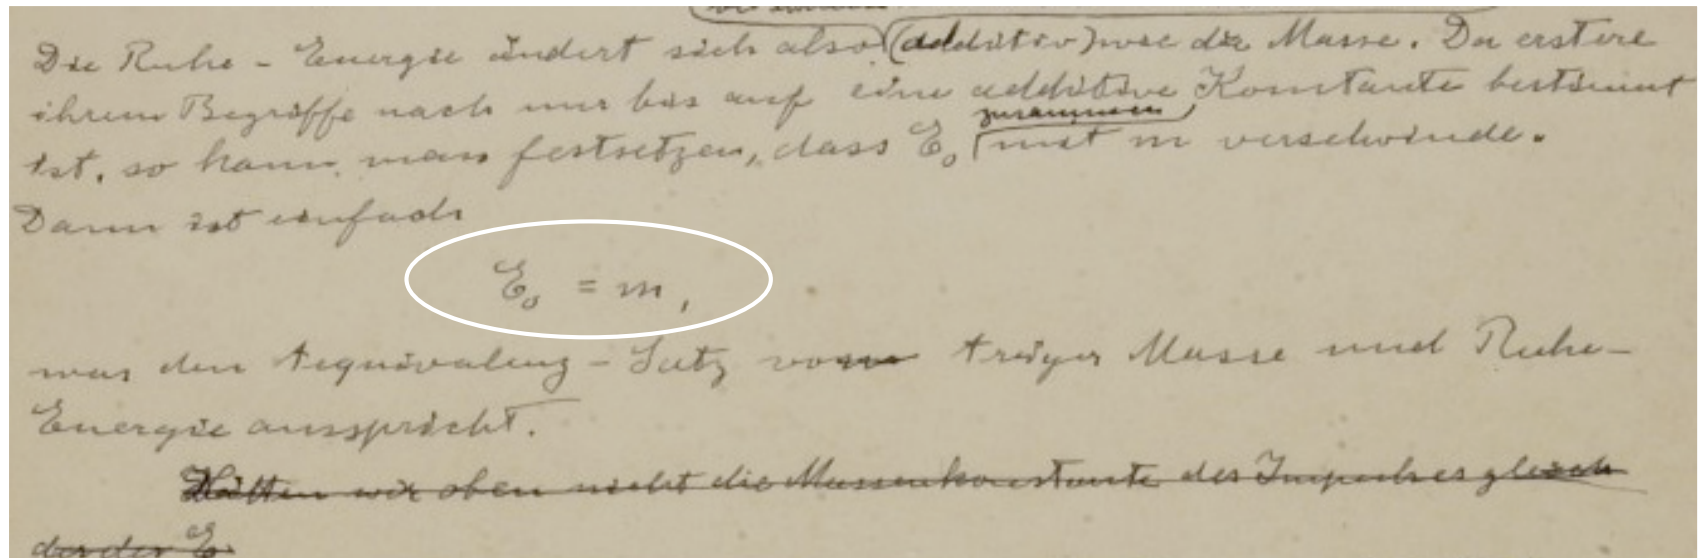 Die Ruhe-Energie ändert sich also (additiv) wie die Masse. Da erstere
ihrem Begriffe nach nur bis auf eine additive Konstante bestimmt
zusammen
ist, so kann man festsetzen, dass E₀ mit m verschwinde.
Dann ist einfach
E₀ = m,
was den Aequivalenz-Satz von träger Masse und Ruhe-
Energie ausspricht.
Hätten wir oben nicht die Massenkonstante des Impulses gleich
der der E